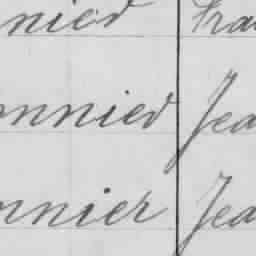 nied Fra
onnied Jea
nnier Jea